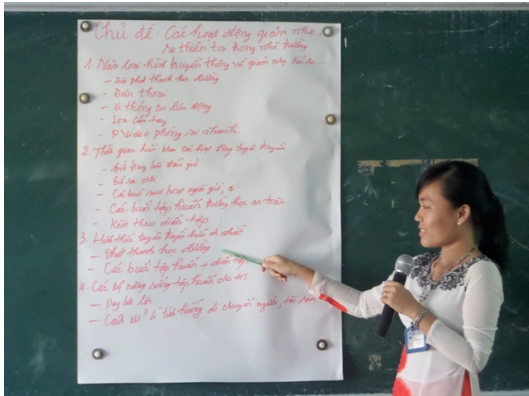 Chủ đề: Các hoạt động giảm nhẹ
rủi ro thiên tai trong nhà trường
1. Năm loại hình truyền thông về giảm nhẹ rủi ro
- Đài phát thanh học đường
- Điện thoại
- Xe thông tin lưu động
- Loa cầm tay
- Video phóng sự nhanh
2. Thời gian các hoạt động tuyên truyền
- Giờ ra chơi
- Các buổi sinh hoạt ngoài giờ
- Các buổi tập huấn trường học an toàn
- Kèm theo diễn tập
3. Hình thức tuyên truyền hiệu quả nhất
- Phát thanh học đường
- Các buổi tập huấn + diễn tập
4. Các kỹ năng sống tập huấn cho
- Dạy bơi lội
- tình huống di chuyển người, tài sản